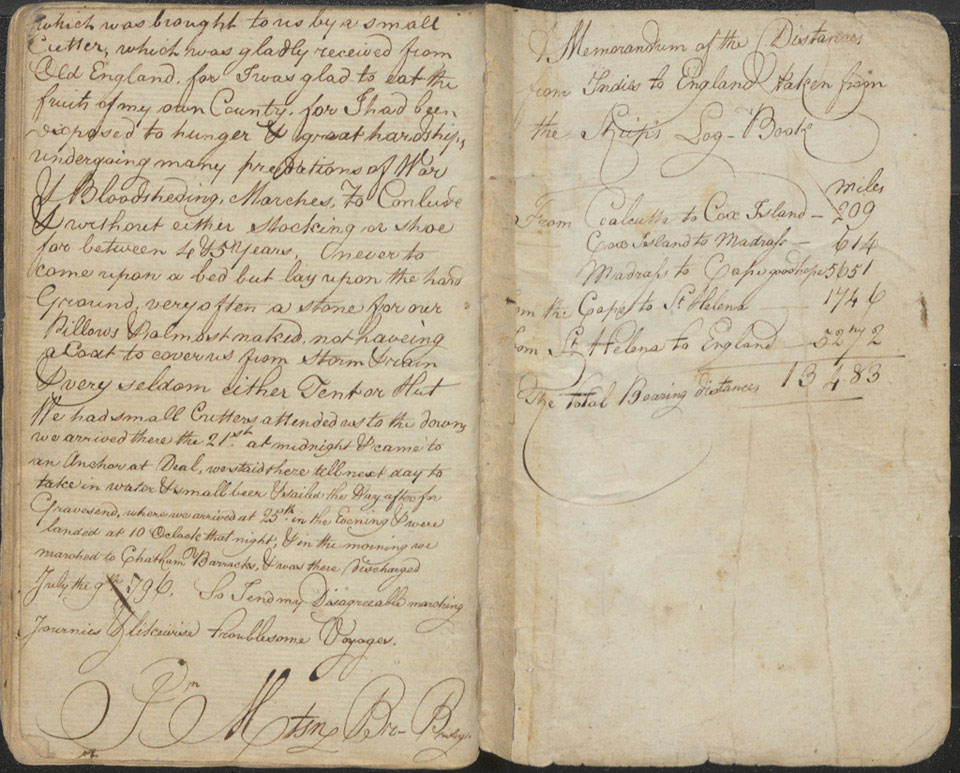 which was brought to us by a small
Cutter, which was gladly received from
Old England. for I was glad to eat the
fruits of my own County. for I had been
exposed to hunger & great hardships,
undergoing many predations of War
& Bloodsheding, Marches, To Conlude
& without either Stocking or Shoe
for between 4 & 5 Years. I never to
come upon a bed but lay upon the hard
Ground, very often a stone for our
Pillows & almost naked, not haveing
a Coat to cover us from Storm & rain
& very seldom either Tent or Hut
We had small Cutters attended us to the downs
we arrived there the 21st. at midnight & came to
an Anchor at Deal, we staid there tell next day to
take in water & small beer & sailed the Day after for
Gravesend, where we arrived at 25th. in the Evening & were
landed at 10 O'Clock that night, & in the morning we
marched to Chatham Barracks, & was there Discharged
July the 9th 1796. So I end my Disagreeable marching
Journies & likewise troublesome Voyages.
A Memorandum of the Distances
from Indies to England taken from
the Ship's Log-Book
miles
From Calcutta to Cox Island - 209
Cox Island to Madrass - 614
Madrass to Cape goodhope 5651
from the Capes to St Helena 1746
from St Helena to England - 5272
The total Bearing distances 13483